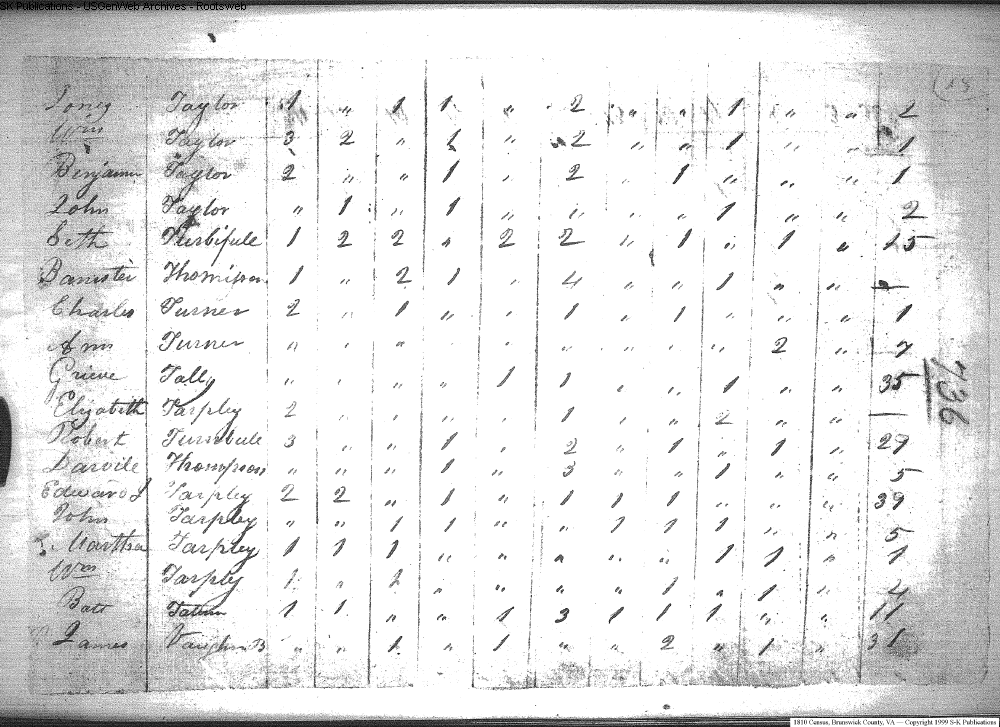 SK Publications - USGenWeb Archives - Rootsweb
Taylor 1 " 1 1 " 2 " " 1 " " 2
Wm Taylor 3 2 " 1 " 2 " " 1 " " 1
Benjamin Taylor 2 " " 1 " 2 " 1 " " " 1
John Taylor " 1 " 1 " " " " 1 " " 2
Seth 1 2 2 " 2 2 " 1 " 1 " 15
Banister Thompson 1 " 2 1 " 4 " " 1 " "
Charles Turner 2 " 1 " " 1 " 1 " " " 1
Ann Turner " " " " " " " " " 2 " 7
Grieve Tally " " " " 1 1 " " 1 " " 35
Elizabeth Tarpley 2 " " " " 1 " " 2 " " —
Robert Turnbule 3 " " 1 " 2 " 1 " 1 " 29
Darvile Thompson " " " 1 " 3 " " 1 " " 5
Edward L Tarpley 2 2 " 1 " 1 1 1 " " " 39
John Tarpley " " 1 1 " " 1 1 1 " " 5
Martha Tarpley 1 1 1 " " " " " 1 1 " 1
Wm Tarpley 1 " 2 " " " " 1 " 1 " 4
Bats Tatum 1 1 " " 1 3 1 1 1 " " 11
James Vaughn B " " 1 " 1 " " 2 " 1 " 31
736
1810 Census, Brunswick County, VA — Copyright 1999 S-K Publications